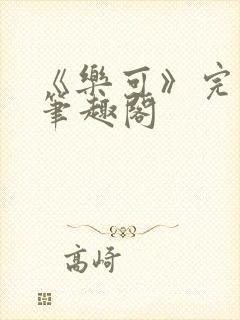 《樂可》完
筆趣閣
高崎